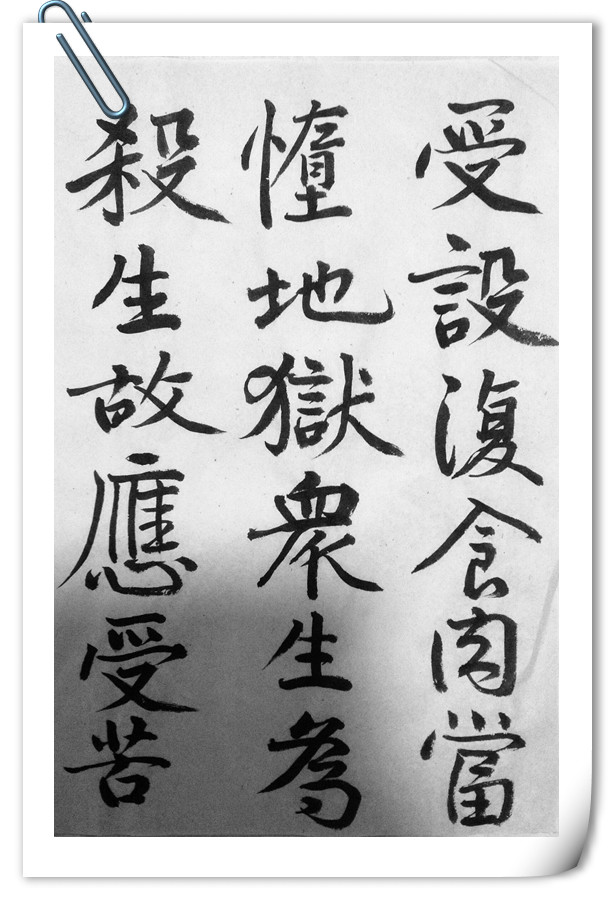 受設復食肉當
墮地獄衆生為
殺生故應受苦